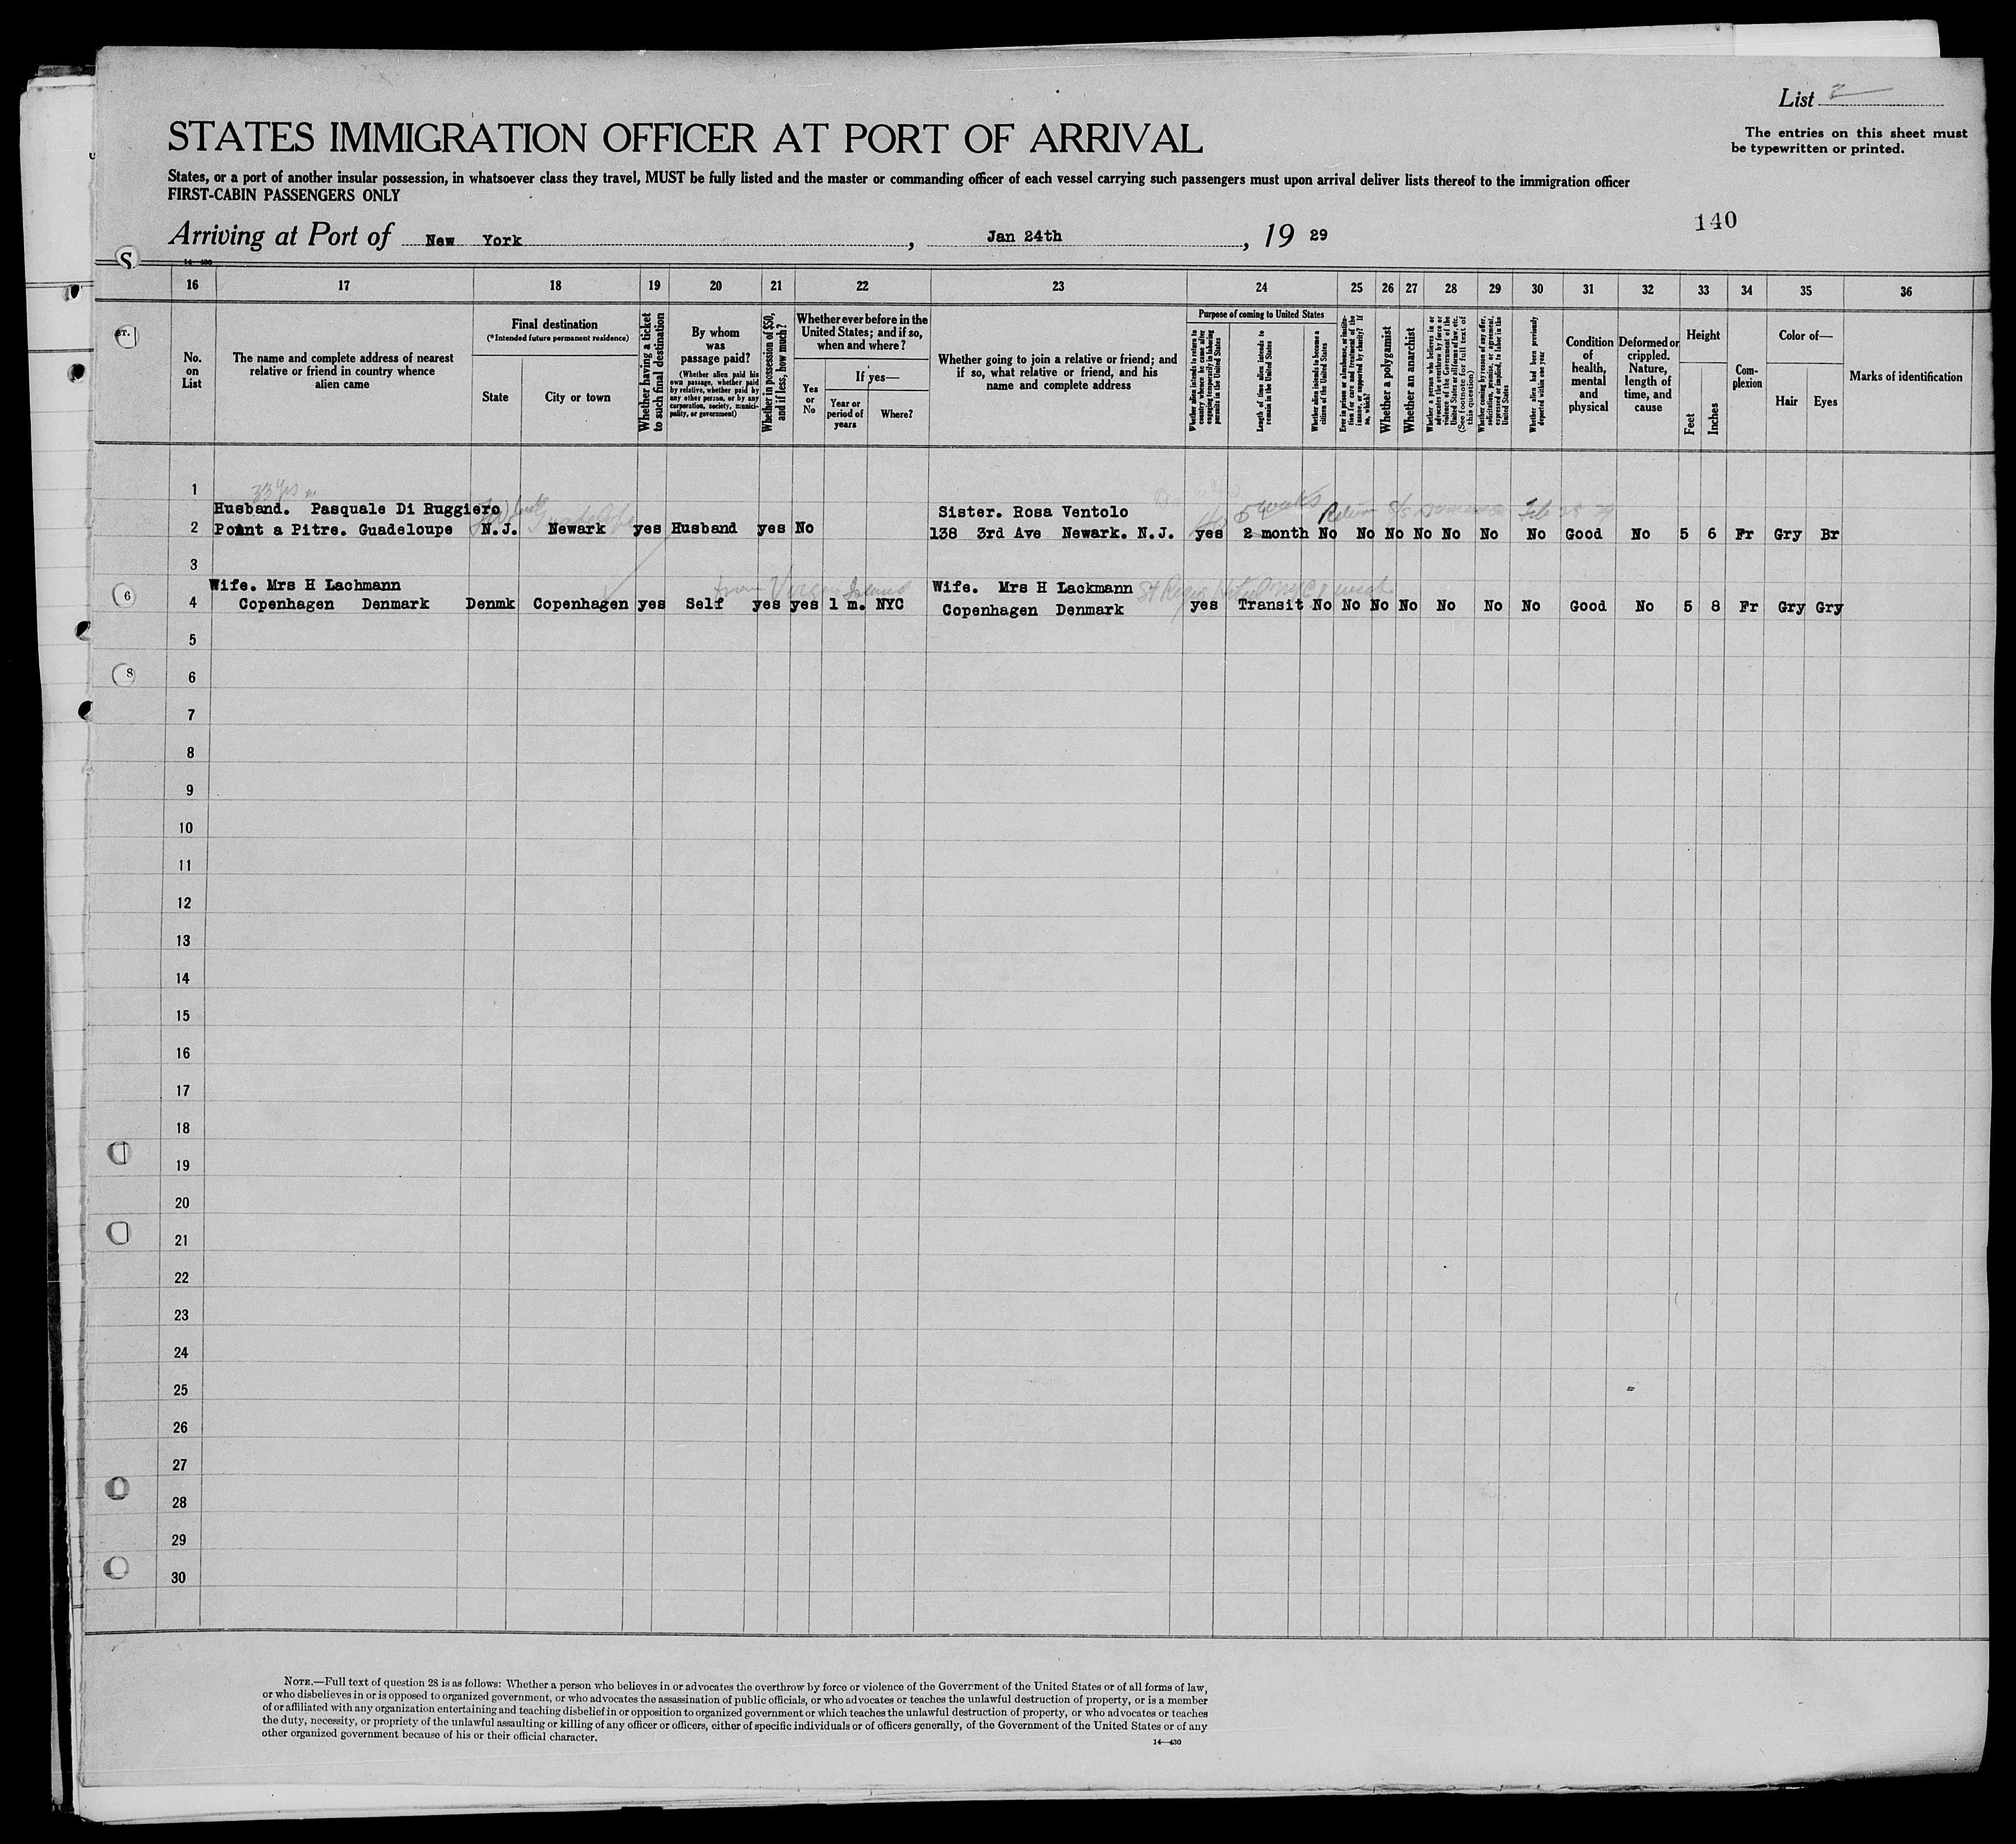 List 2
STATES IMMIGRATION OFFICER AT PORT OF ARRIVAL
The entries on this sheet must
be typewritten or printed.
States, or a port of another insular possession, in whatsoever class they travel, MUST be fully listed and the master or commanding officer of each vessel carrying such passengers must upon arrival deliver lists thereof to the immigration officer
FIRST-CABIN PASSENGERS ONLY
140
Arriving at Port of New York, Jan 24th, 19 29
S.
14—430
16 17 18 19 20 21 22 23 24 25 26 27 28 29 30 31 32 33 34 35 36
No. on List
The name and complete address of nearest relative or friend in country whence alien came
Final destination
(*Intended future permanent residence)
State
City or town
Whether having a ticket to such final destination
By whom was passage paid?
(Whether alien paid his own passage, whether paid by relative, whether paid by any other person, or by any corporation, society, municipality, or government)
Whether in possession of $50, and if less, how much?
Whether ever before in the United States; and if so, when and where?
Yes or No
If yes—
Year or period of years
Where?
Whether going to join a relative or friend; and if so, what relative or friend, and his name and complete address
Purpose of coming to United States
Whether alien intends to return to country whence he came after engaging temporarily in laboring pursuits in the United States
Length of time alien intends to remain in the United States
Whether alien intends to become a citizen of the United States
Ever in prison or almshouse, or institution for care and treatment of the insane, or supported by charity? If so, which?
Whether a polygamist
Whether an anarchist
Whether a person who believes in or advocates the overthrow by force or violence of the Government of the United States or all forms of law, etc. (See footnote for full text of this question)
Whether coming by reason of any offer, solicitation, promise, or agreement, expressed or implied, to labor in the United States
Whether alien had been previously deported within one year
Condition of health, mental and physical
Deformed or crippled. Nature, length of time, and cause
Height
Feet
Inches
Complexion
Color of—
Hair
Eyes
Marks of identification
1
33 yrs
Husband. Pasquale Di Ruggiero
Sister. Rosa Ventolo
5 weeks
2 Point a Pitre. Guadeloupe N.J. Newark yes Husband yes No 138 3rd Ave Newark. N.J. yes 2 month No No No No No No No Good No 5 6 Fr Gry Br
3
Wife. Mrs H Lachmann
from Virgin Island
Wife. Mrs H Lackmann
St Regis Hotel NYC 1 week
4 Copenhagen Denmark Denmk Copenhagen yes Self yes yes 1 m. NYC Copenhagen Denmark yes Transit No No No No No No No Good No 5 8 Fr Gry Gry
5
6
7
8
9
10
11
12
13
14
15
16
17
18
19
20
21
22
23
24
25
26
27
28
29
30
NOTE.—Full text of question 28 is as follows: Whether a person who believes in or advocates the overthrow by force or violence of the Government of the United States or of all forms of law,
or who disbelieves in or is opposed to organized government, or who advocates the assassination of public officials, or who advocates or teaches the unlawful destruction of property, or is a member
of or affiliated with any organization entertaining and teaching disbelief in or opposition to organized government or which teaches the unlawful destruction of property, or who advocates or teaches
the duty, necessity, or propriety of the unlawful assaulting or killing of any officer or officers, either of specific individuals or of officers generally, of the Government of the United States or of any
other organized government because of his or their official character.
14—430